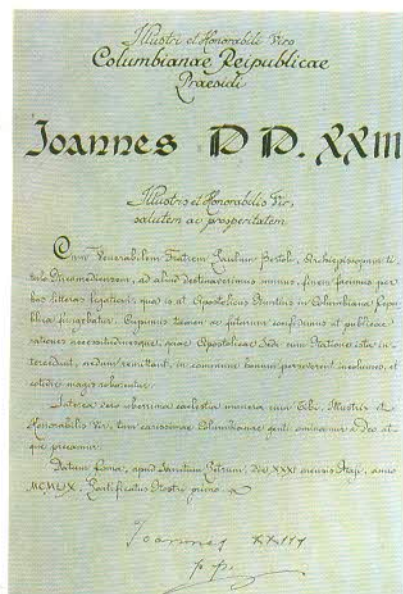 Illustri et Honorabili Viro
Columbianae Reipublicae
Praesidi
Joannes PP. XXIII
Illustris et Honorabilis Vir,
salutem ac prosperitatem
Cum Venerabilem Fratrem Paulum Bertoli, Archiepiscopum ti-
tulo Nicomediensem, ad aliud destinaverimus munus, finem facimus per
has litteras legationi, qua is ut Apostolicus Nuntius in Columbiana Repu-
blica fungebatur. Cupimus tamen ac futurum confidimus ut publicae
rationes necessitudinesque, quae Apostolicae Sedi cum Natione ista in-
tercedunt, nedum remittant, in commune bonum perseverent incolumes, et
cotidie magis roborentur.
Interea vero uberrima caelestia munera cum Tibi, Illustris et
Honorabilis Vir, tum carissimae Columbianae genti ominamur a Deo at-
que precamur.
Datum Romae, apud Sanctum Petrum, die XXXI mensis, anno
MCMLIX, Pontificatus Nostri primo.
Joannes XXIII
pp.